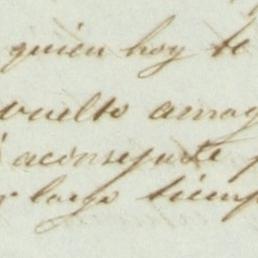 quien hoy te
vuelto amag
aconsejarte p
r largo tiemp